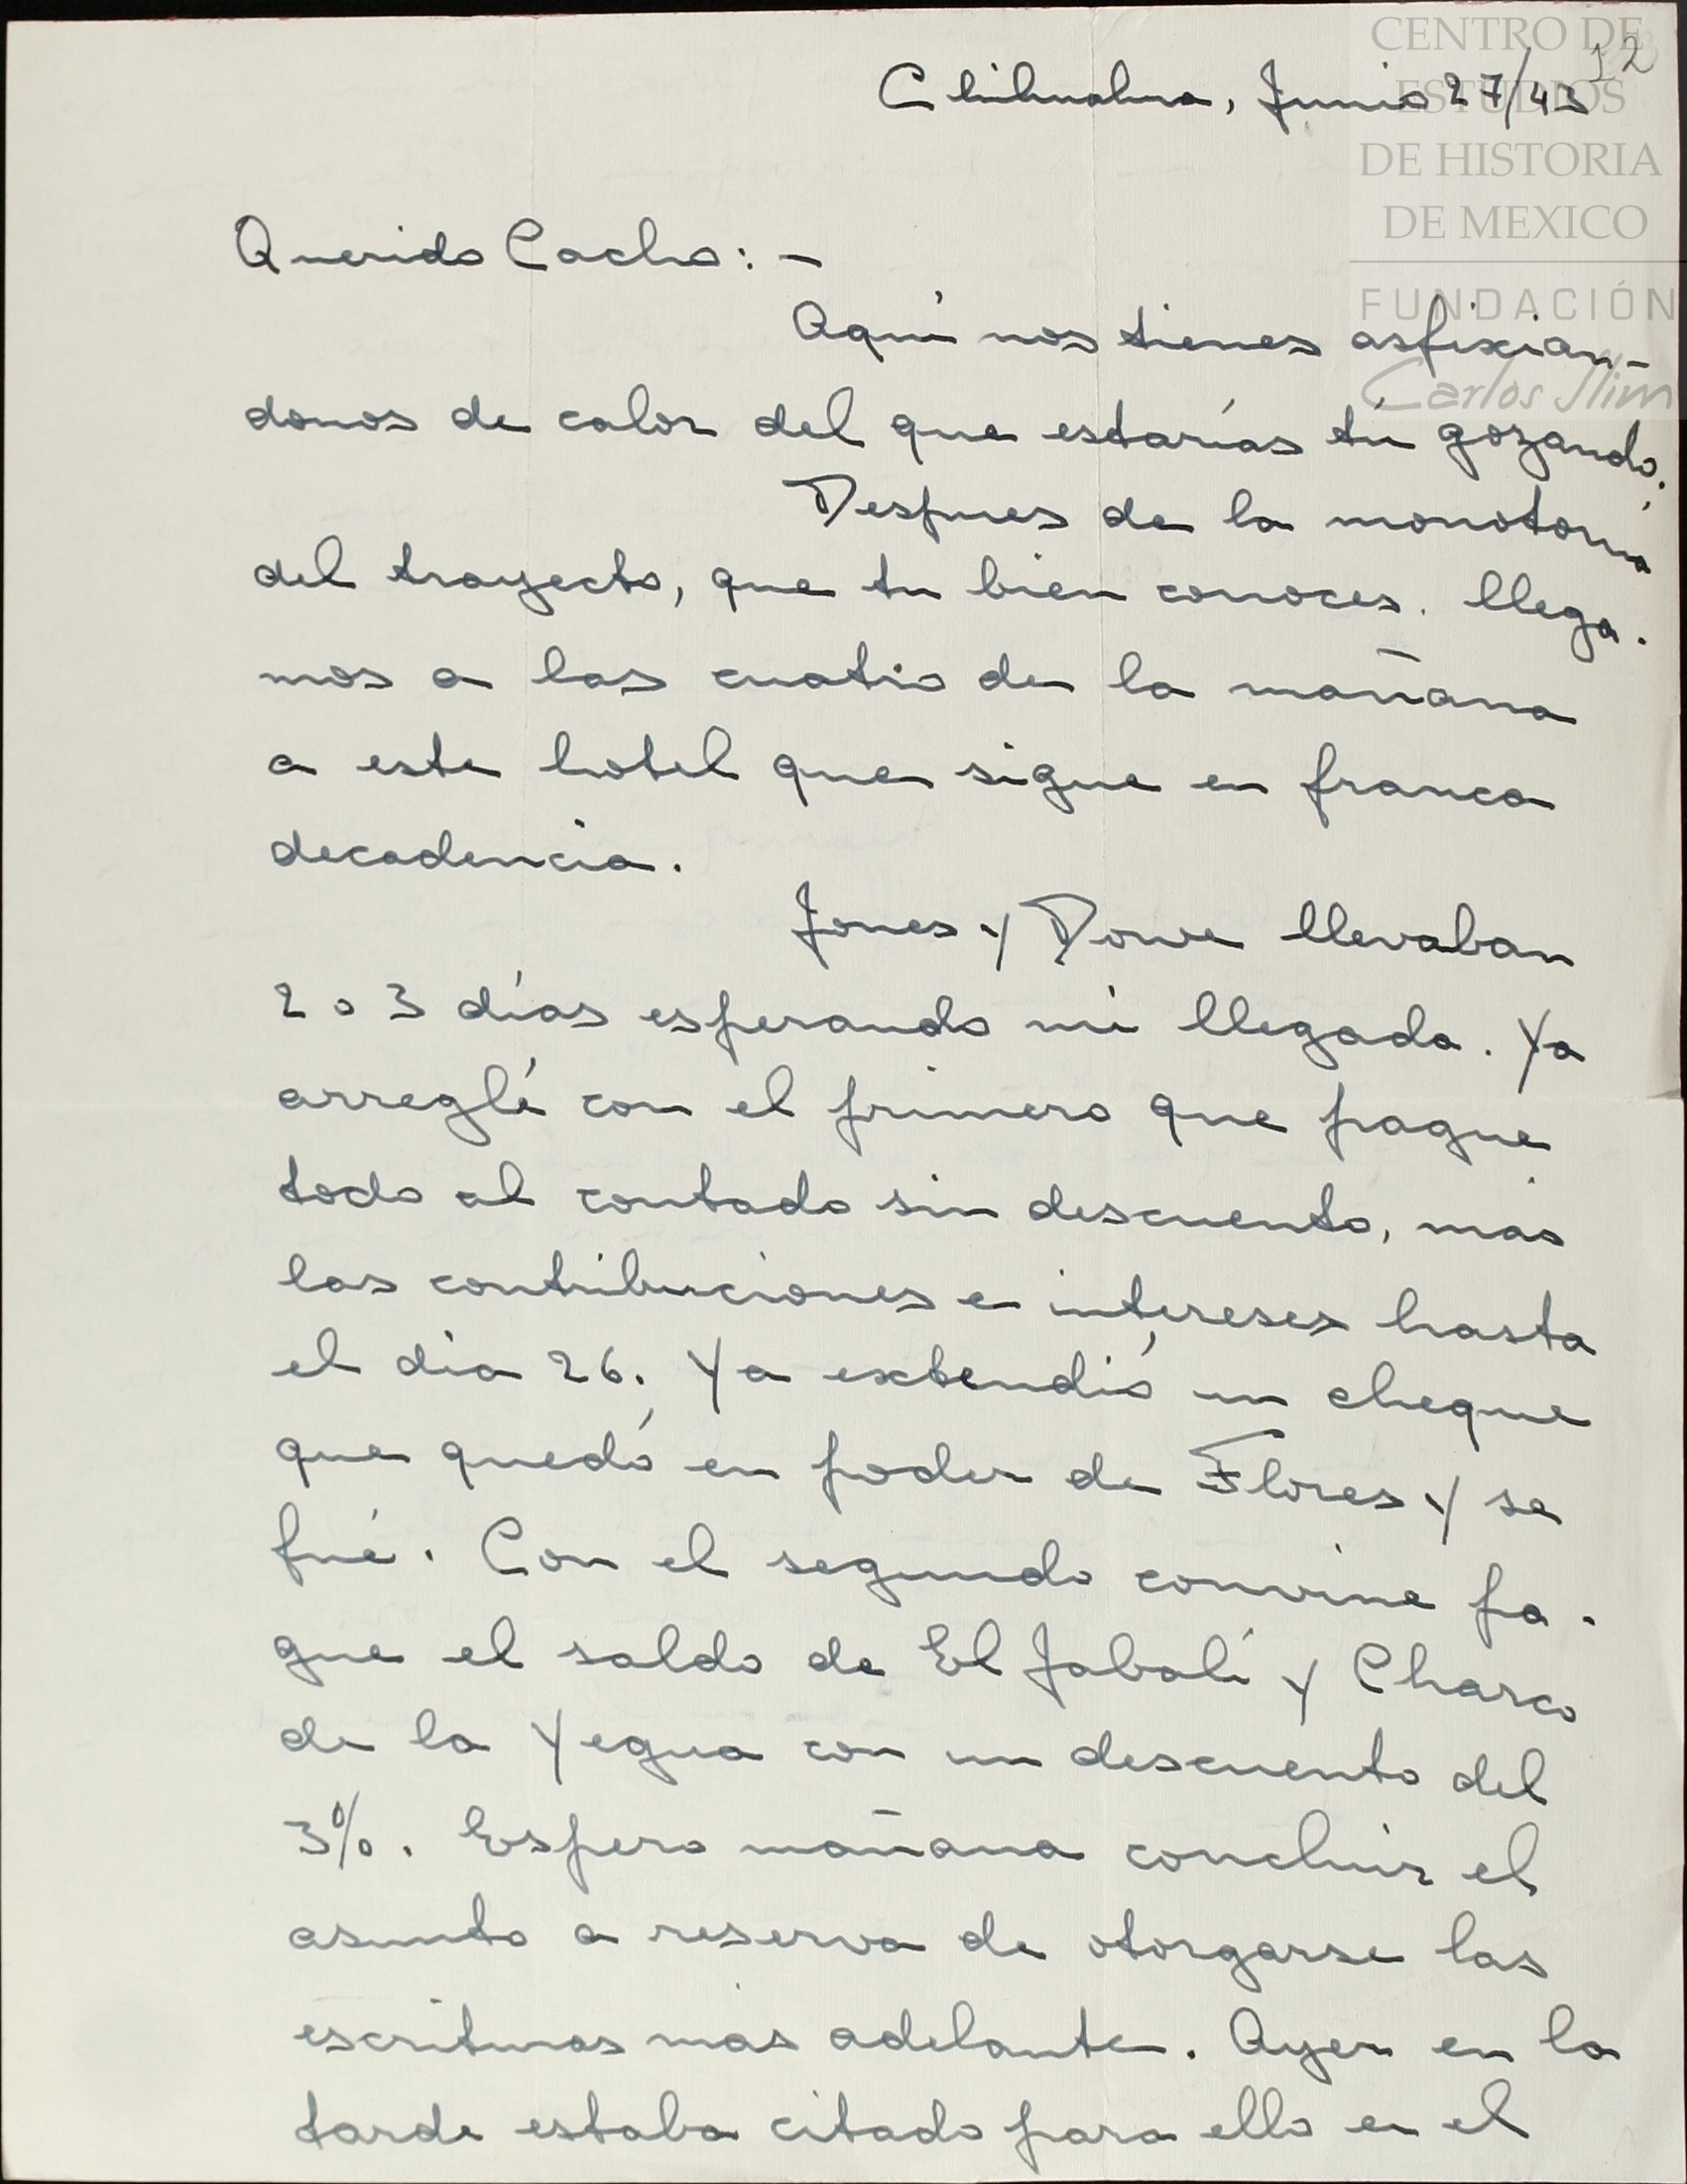 12
Chihuahua, Junio 27/43
CENTRO DE
ESTUDIOS
DE HISTORIA
DE MEXICO
FUNDACIÓN
Carlos Slim
Querido Cacho: –
Aquí nos tienes asfixian-
donos de calor del que estarías tú gozando.
Despues de la monotonía
del trayecto, que tu bien conoces. llega-
mos a las cuatro de la mañana
a este hotel que sigue en franca
decadencia.
Jones y Dowe llevaban
2 o 3 días esperando mi llegada. Ya
arreglé con el primero que pague
todo al contado sin descuento, más
las contribuciones e intereses hasta
el dia 26. Ya extendió un cheque
que quedó en poder de Flores y se
fué. Con el segundo convine pa-
gue el saldo de El Jabalí y Charco
de la Yegua con un descuento del
3%. Espero mañana concluir el
asunto a reserva de otorgarse las
escrituras más adelante. Ayer en la
tarde estaba citado para ello en el